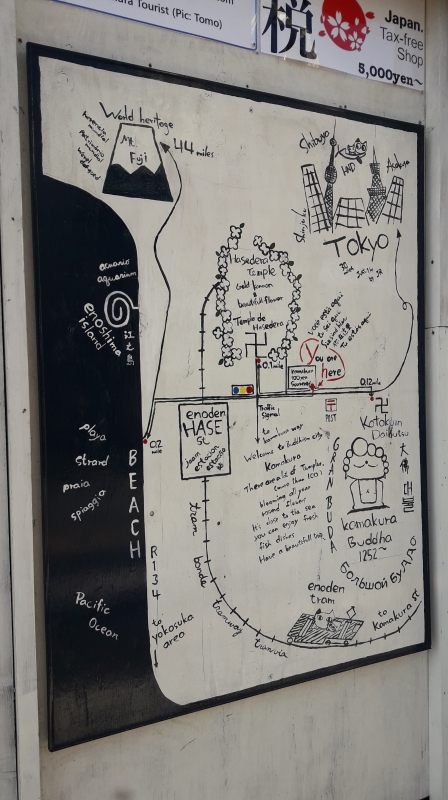 ura Tourist (Pic: Tomo)
税
Japan.
Tax-free
Shop
5,000yen~
World heritage
Mt.
Fuji
44 miles
Shibuya
HND
Asakusa
Shinjuku
TOKYO
acuario
aquarium
enoshima
Island
江の島
Hasedera
Temple
Gold kannon
&
beautiful flower
Templo de
Hasedera
卍
0.1 mile
You are
here
kamakura
POST
0.12 mile
卍
Kotokuin
Daibutsu
大佛
대불
Traffic
Signal
enoden
HASE
St.
0.2
mile
playa
Strand
praia
spiaggia
BEACH
Welcome to Buddhism city
Kamakura
There are lots of Temples
blooming all year
round flower
It's close to the sea
you can enjoy fresh
fish dishes
Have a beautiful trip.
GRAN BUDA
Kamakura
Buddha
1252~
Большой БУДДА
R134
to
yokosuka
area
Pacific
Ocean
tram
tramway
tranvia
enoden
tram
to
Kamakura st